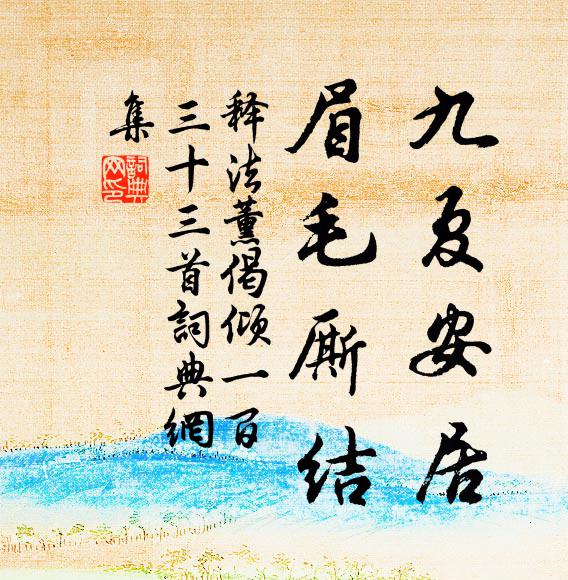 九夏安居
眉毛厮结
释法薰偈倾一百
三十三首詞典網
集
詞典網印